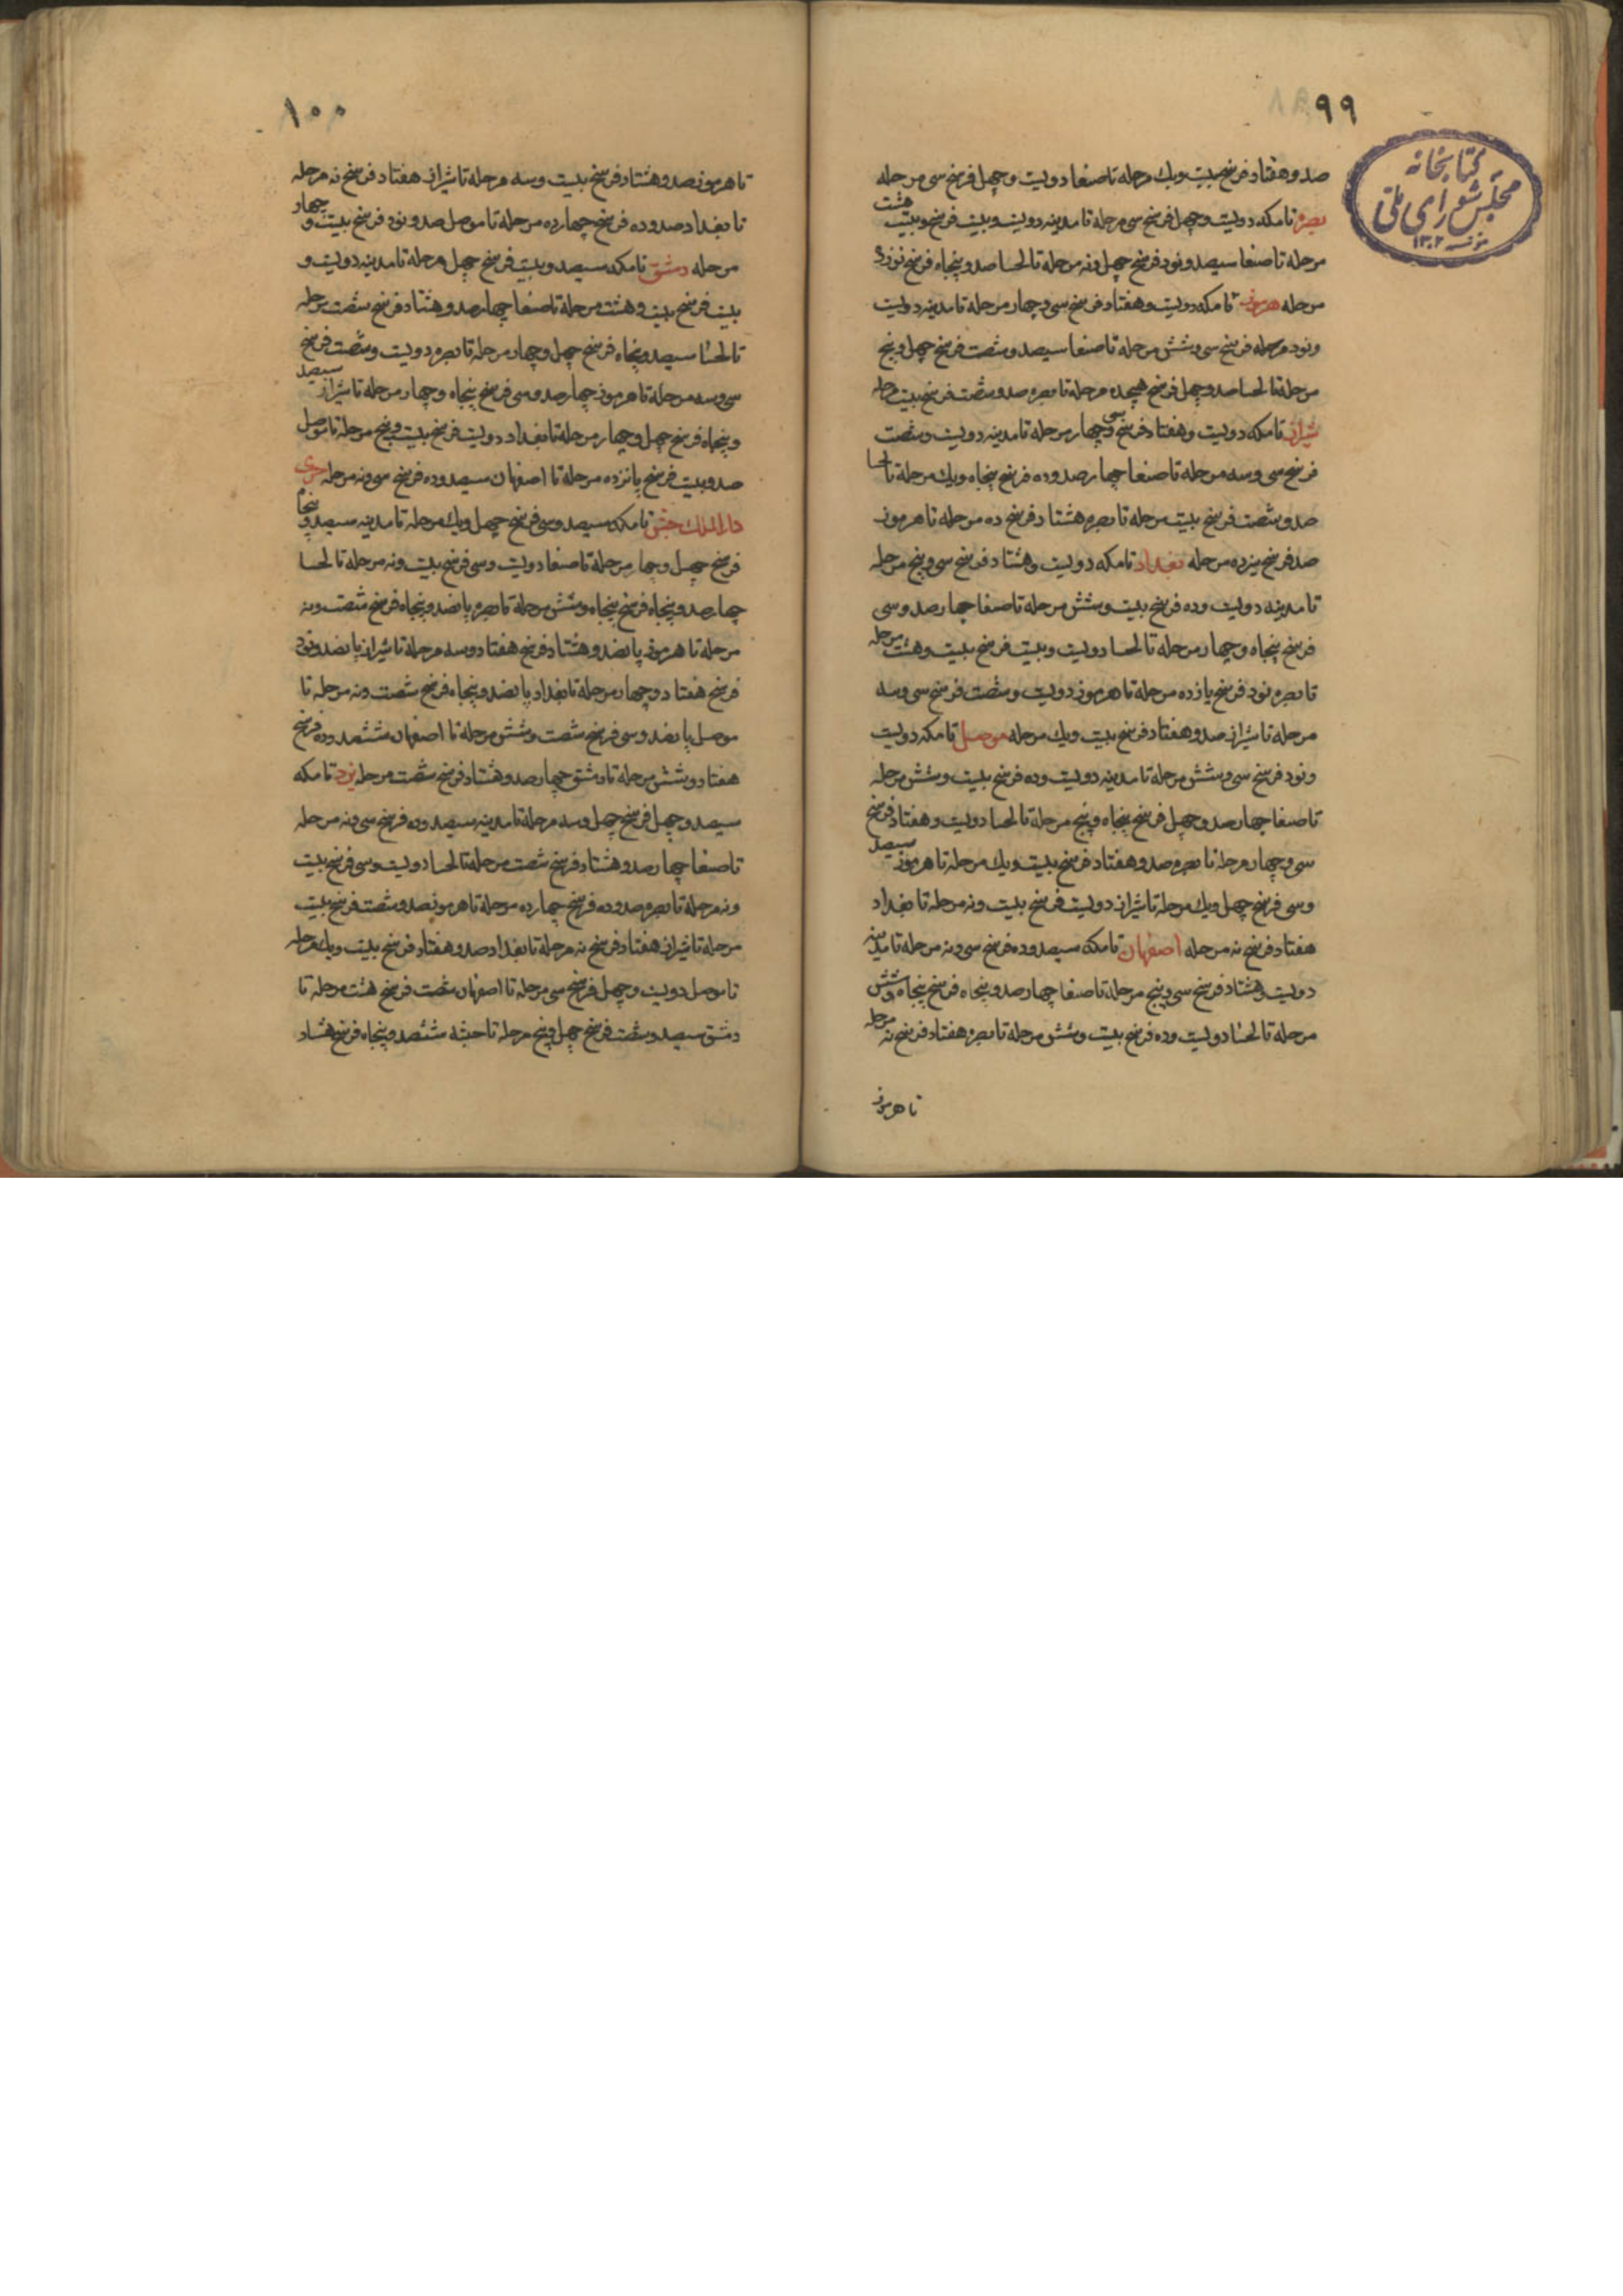 ۹۹
کتابخانه
مجلس شورای ملی
۱۳۰۲
صد و هفتاد فرسخ بیست و یک مرحله تا صنعا دویست و چهل فرسخ سی مرحله
بصره تا مکه دویست و چهل فرسخ سی مرحله تا مدینه دویست و بیست فرسخ و بیست هشت
مرحله تا صنعا سیصد و نود فرسخ چهل و نه مرحله تا لحسا صد و پنجاه فرسخ نوزده
مرحله هرموز تا مکه دویست و هفتاد فرسخ سی و چهار مرحله تا مدینه دویست
و نود مرحله فرسخ سی و شش مرحله تا صنعا سیصد و شصت فرسخ چهل و پنج
مرحله تا لحسا صد و چهل فرسخ هیجده مرحله تا بصره صد و شصت فرسخ بیست مرحله
شیراز تا مکه دویست و هفتاد فرسخ سی و چهار مرحله تا مدینه دویست و شصت
فرسخ سی و سه مرحله تا صنعا چهار صد و ده فرسخ پنجاه و یک مرحله تا لحسا
صد و شصت فرسخ بیست مرحله تا بصره هشتاد فرسخ ده مرحله تا هرموز
صد فرسخ سیزده مرحله بغداد تا مکه دویست و هشتاد فرسخ سی و پنج مرحله
تا مدینه دویست و ده فرسخ بیست و شش مرحله تا صنعا چهار صد و سی
فرسخ پنجاه و چهار مرحله تا لحسا دویست و بیست فرسخ بیست و هشت مرحله
تا بصره نود فرسخ یازده مرحله تا هرموز دویست و شصت فرسخ سی و سه
مرحله تا شیراز صد و هفتاد فرسخ بیست و یک مرحله موصل تا مکه دویست
و نود فرسخ سی و شش مرحله تا مدینه دویست و ده فرسخ بیست و شش مرحله
تا صنعا چهار صد و چهل فرسخ پنجاه و پنج مرحله تا لحسا دویست و هفتاد فرسخ
سی و چهار مرحله تا بصره صد و هفتاد فرسخ بیست و یک مرحله تا هرموز سیصد
و سی فرسخ چهل و یک مرحله تا شیراز دویست فرسخ بیست و نه مرحله تا بغداد
هفتاد فرسخ نه مرحله اصفهان تا مکه سیصد و ده فرسخ سی و نه مرحله تا مدینه
دویست و هشتاد فرسخ سی و پنج مرحله تا صنعا چهار صد و پنجاه فرسخ پنجاه و شش
مرحله تا لحسا دویست و ده فرسخ بیست و شش مرحله تا بصره هفتاد فرسخ نه مرحله
تا هرموز
۱۰۰
تا هرموز صد و هشتاد فرسخ بیست و سه مرحله تا شیراز هفتاد فرسخ نه مرحله
تا بغداد صد و ده فرسخ چهارده مرحله تا موصل صد و نود فرسخ بیست و چهار
مرحله دمشق تا مکه سیصد و بیست فرسخ چهل مرحله تا مدینه دویست و
بیست فرسخ بیست و هشت مرحله تا صنعا چهار صد و هشتاد فرسخ شصت مرحله
تا لحسا سیصد و پنجاه فرسخ چهل و چهار مرحله تا بصره دویست و شصت فرسخ
سی و سه مرحله تا هرموز چهار صد و سی فرسخ پنجاه و چهار مرحله تا شیراز سیصد
و پنجاه فرسخ چهل و چهار مرحله تا بغداد دویست فرسخ بیست و پنج مرحله تا موصل
صد و بیست فرسخ پانزده مرحله تا اصفهان سیصد و ده فرسخ سی و نه مرحله جرمی
دار الملک حبش تا مکه سیصد و سی فرسخ چهل و یک مرحله تا مدینه سیصد و پنجاه
فرسخ چهل و چهار مرحله تا صنعا دویست و سی فرسخ بیست و نه مرحله تا لحسا
چهار صد و پنجاه فرسخ پنجاه و شش مرحله تا بصره پانصد و پنجاه فرسخ شصت و نه
مرحله تا هرموز پانصد و هشتاد فرسخ هفتاد و سه مرحله تا شیراز پانصد و نود
فرسخ هفتاد و چهار مرحله تا بغداد پانصد و پنجاه فرسخ شصت و نه مرحله تا
موصل پانصد و سی فرسخ شصت و شش مرحله تا اصفهان ششصد و ده فرسخ
هفتاد و شش مرحله تا دمشق چهار صد و هشتاد فرسخ شصت مرحله یزد تا مکه
سیصد و چهل فرسخ چهل و سه مرحله تا مدینه سیصد و ده فرسخ سی و نه مرحله
تا صنعا چهار صد و هشتاد فرسخ شصت مرحله تا لحسا دویست و سی فرسخ بیست
و نه مرحله تا بصره صد و ده فرسخ چهارده مرحله تا هرموز صد و شصت فرسخ بیست
مرحله تا شیراز هفتاد فرسخ نه مرحله تا بغداد صد و هفتاد فرسخ بیست و یک مرحله
تا موصل دویست و چهل فرسخ سی مرحله تا اصفهان شصت فرسخ هشت مرحله تا
دمشق سیصد و شصت فرسخ چهل و پنج مرحله تا حبشه ششصد و پنجاه فرسخ هشتاد